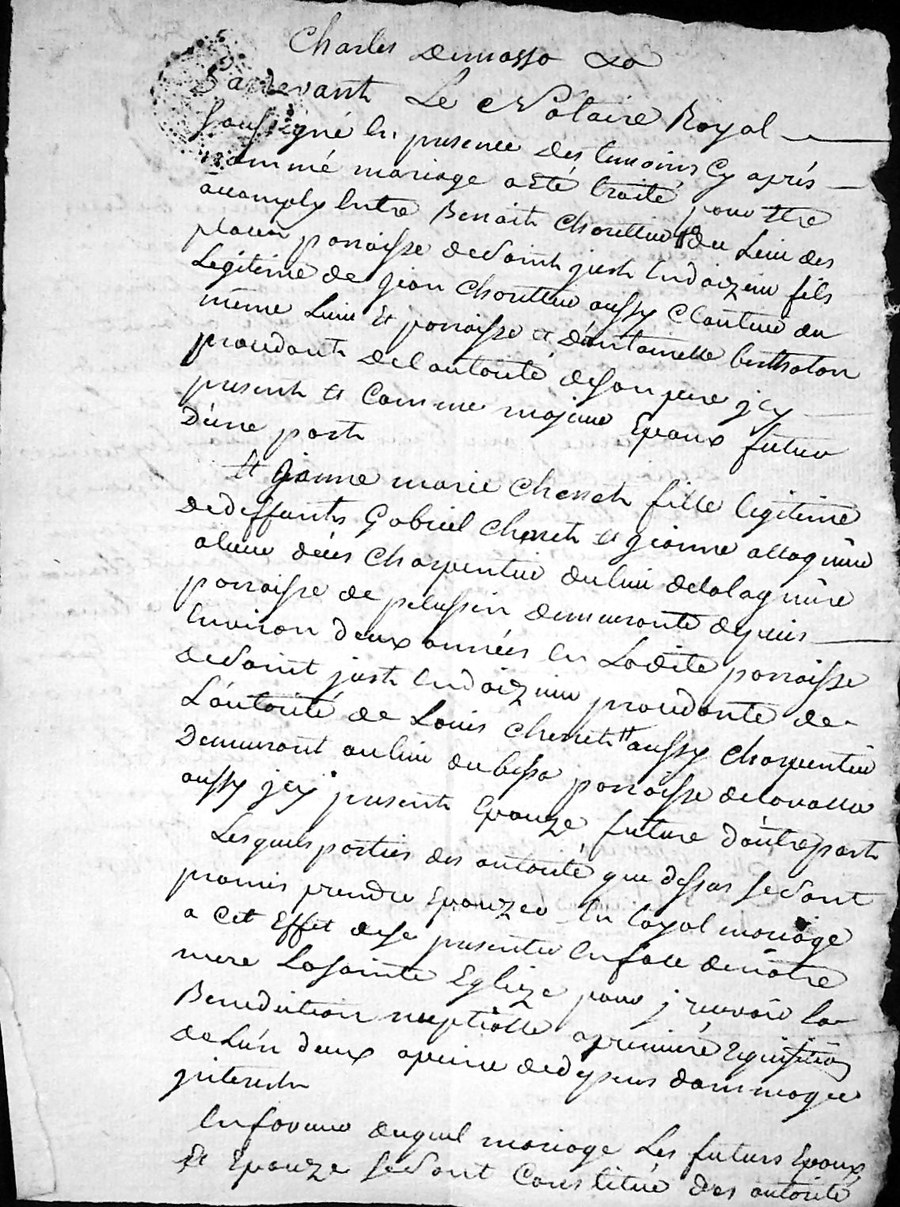 Charles Demasso
Pardevant Le Notaire Royal
Soussigné En presence des temoins Cy aprés
nommé mariage a Eté traité pour être
accomply Entre Benoit Chorellue du Lieu des
places parroisse de Saint just Endoizieu fils
Legitime de jean Chorellue aussy du
même Lieu Et parroisse et d'antoinette bertholon
procedant de L'autorité de Son pere jcy
present et Comme majeur Epoux futur
D'une part
Et jeanne marie Chenet fille legitime
de deffunts Gabriel Chenet et jeanne allagnière
a leur décés Charpentier du lieu de Lalagnière
parroisse de pelussin demeurante depuis
Environ deux années En Ladite parroisse
de Saint just Endoizieu procedante de
L'autorité de Louis Chenet aussy Charpentier
Demeurant au lieu du besse parroisse de Lavalla
aussy jcy present Epouze future d'autre part
Lesquels parties des autorité que dessus se Sont
promis prendre Epouzer En loyal mariage
a Cet Effet de se presenter En face de nôtre
mere La Sainte Eglize pour j recevoir la
Benediction nuptialle a premiere requisition
de L'un deux a peine de depens dommage
jnterests
En faveur duquel mariage Les futurs Epoux
Et Epouze se Sont Constitué des autorité